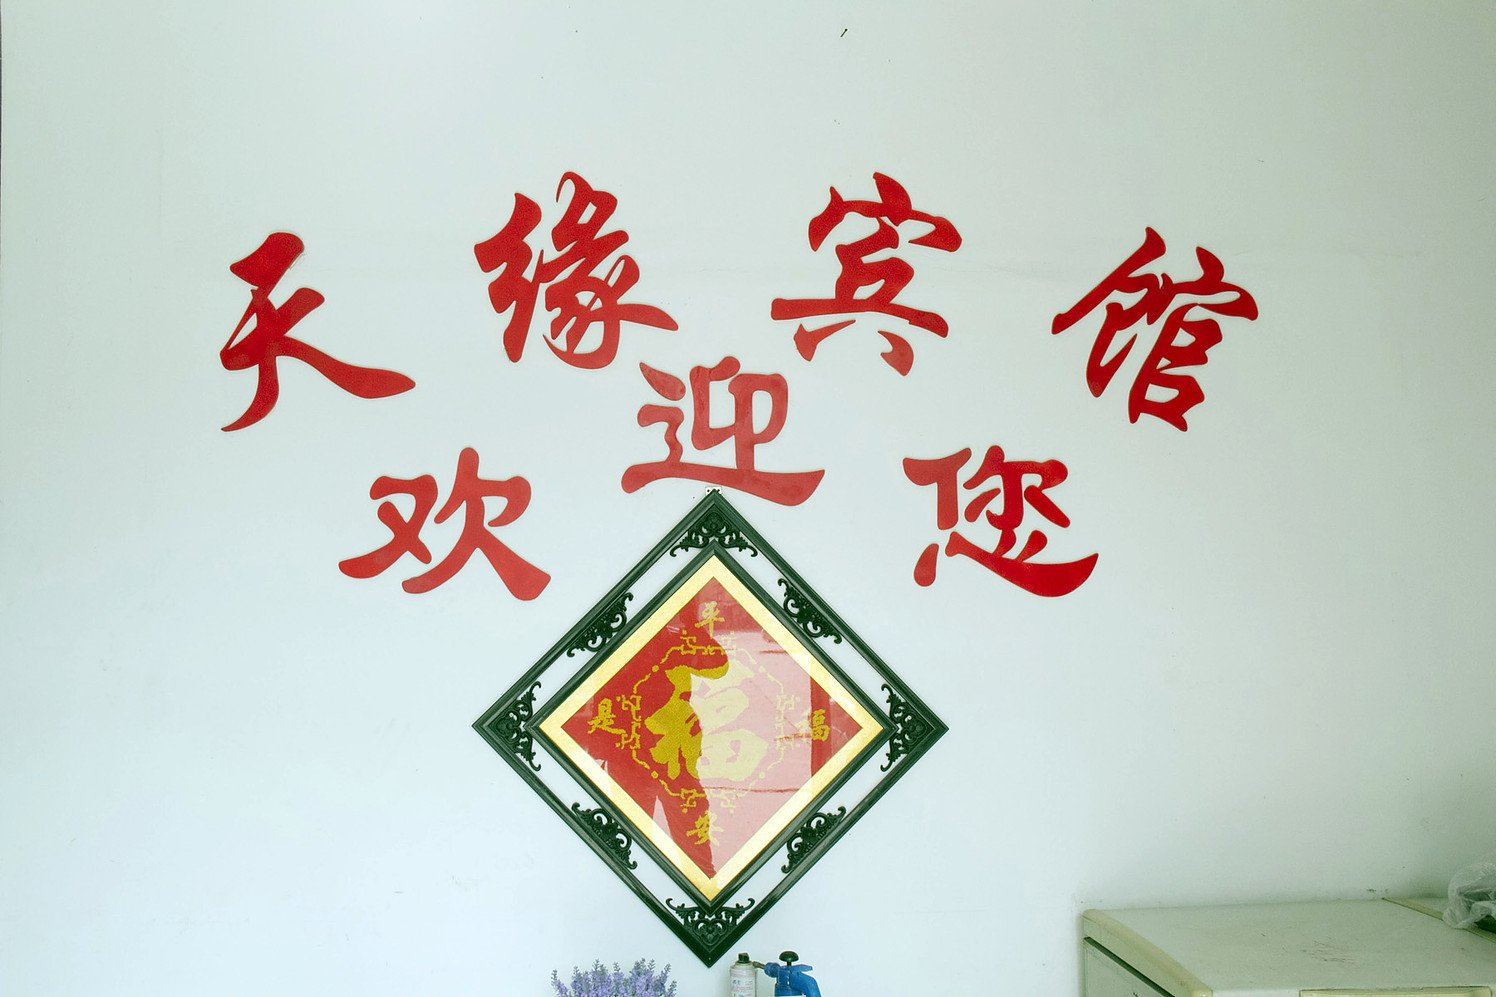 天缘宾馆
欢迎您
平
是福
福
安